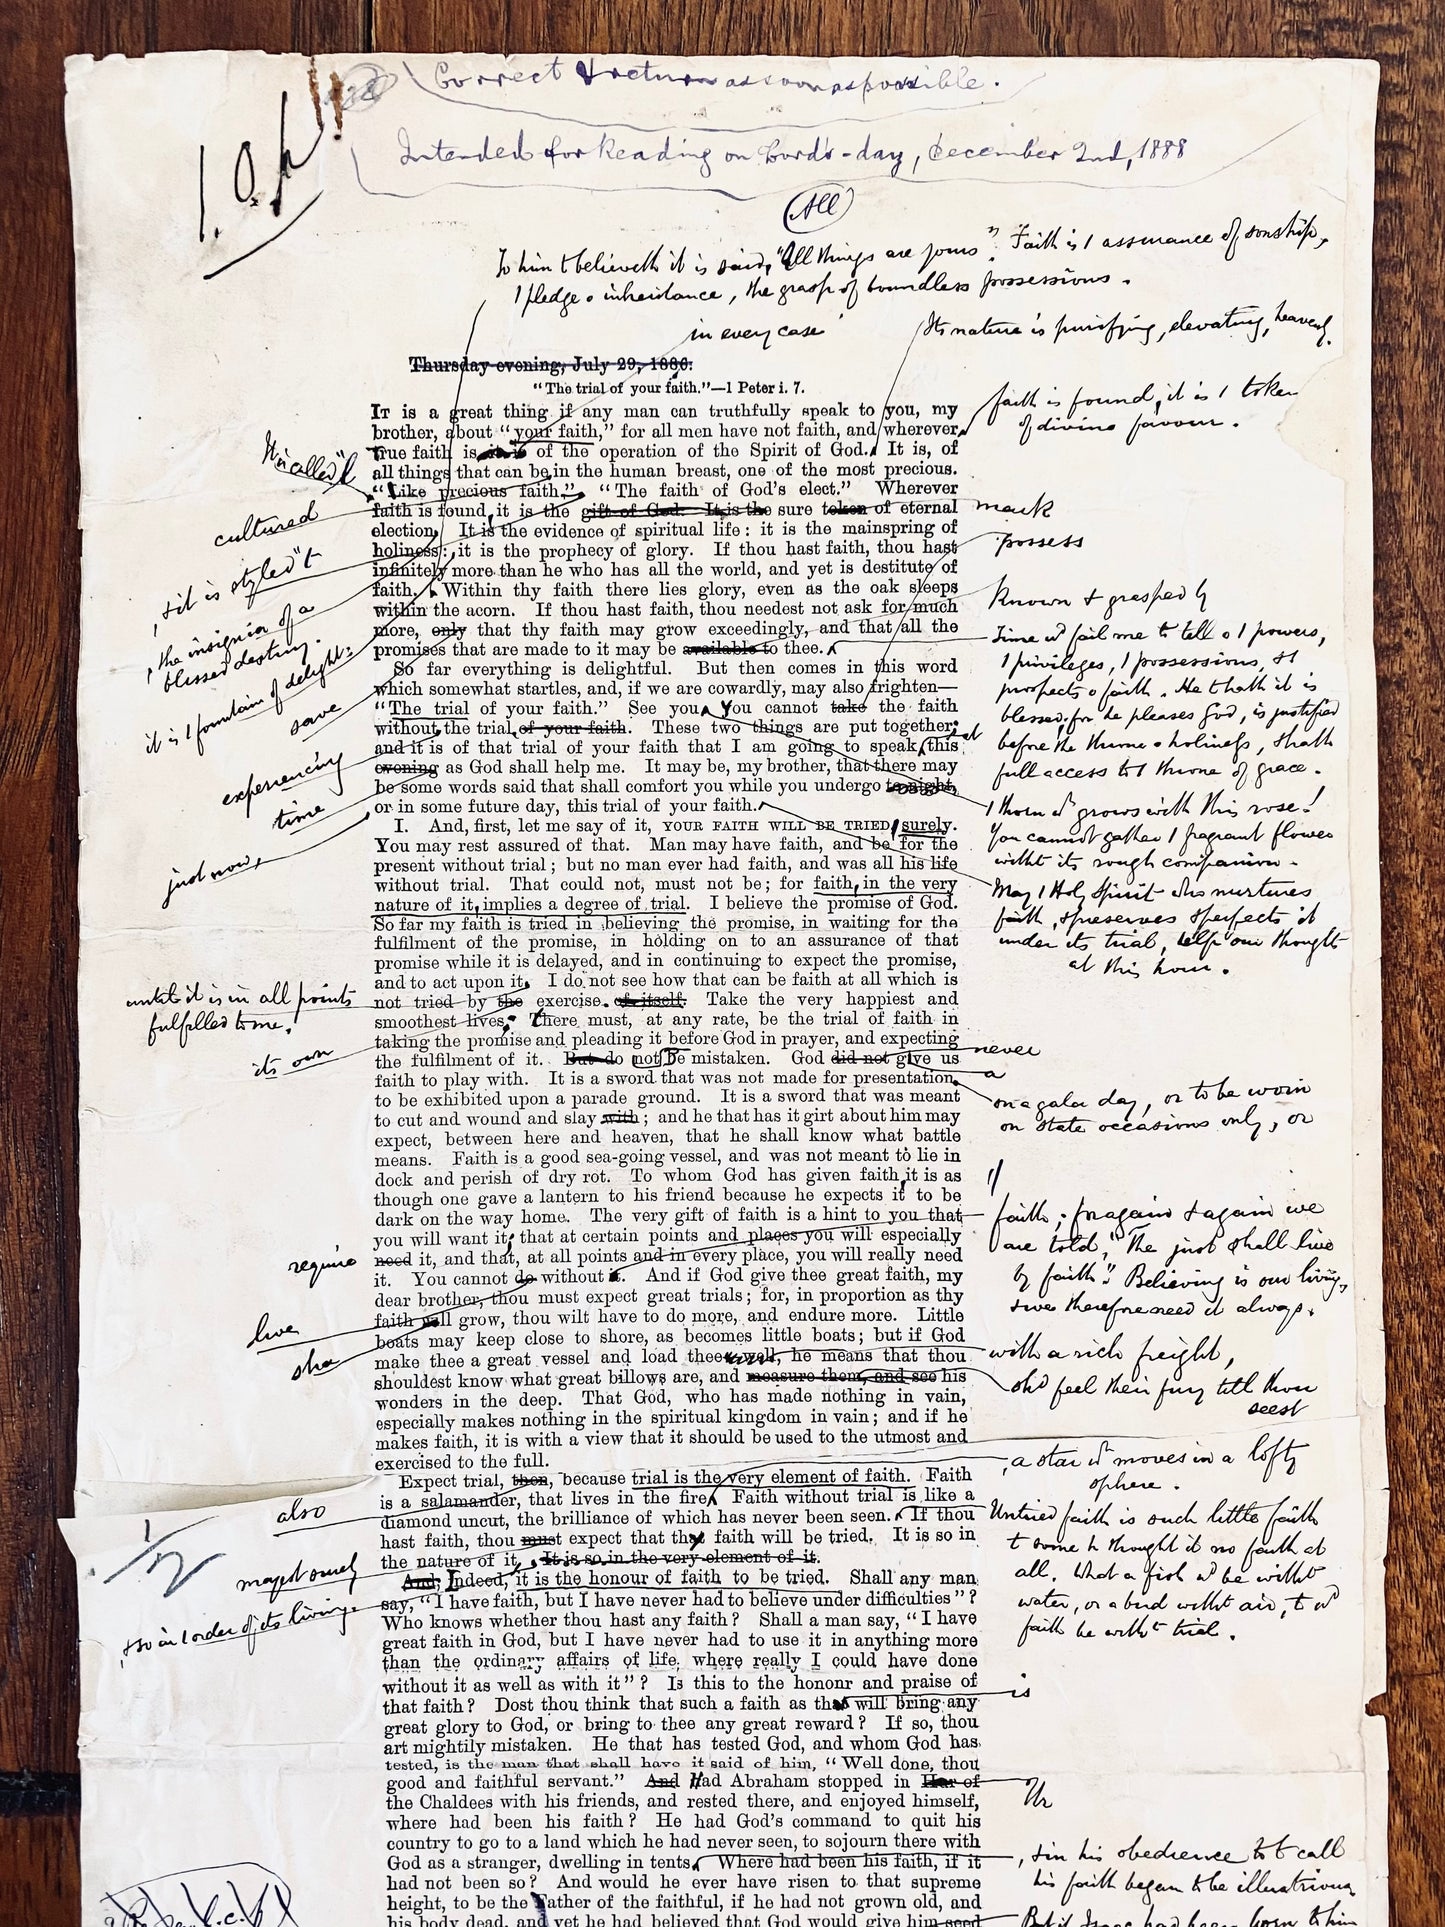 Correct & return as soon as possible.
Intended for Reading on Lord's-day, December 2nd, 1888
All
To him t believeth it is said, "All things are yours". Faith is 1 assurance of sonship,
1 pledge o inheritance, the grasp of boundless possessions.
in every case
Its nature is purifying, elevating, heavenly.
Thursday evening, July 29, 1886.
"The trial of your faith."—1 Peter i. 7.
IT is a great thing if any man can truthfully speak to you, my
brother, about "your faith," for all men have not faith, and wherever
faith is found, it is 1 token
of divine favour.
True faith is it is of the operation of the Spirit of God. It is, of
It is called "t
all things that can be in the human breast, one of the most precious.
"Like precious faith." "The faith of God's elect." Wherever
cultured
faith is found, it is the gift of God. It is the sure token of eternal
mark
election. It is the evidence of spiritual life: it is the mainspring of
possess
holiness: it is the prophecy of glory. If thou hast faith, thou hast
, & it is styled "t
infinitely more than he who has all the world, and yet is destitute of
faith. Within thy faith there lies glory, even as the oak sleeps
known & grasped by
, the insignia of a
blessed destiny.
within the acorn. If thou hast faith, thou needest not ask for much
more, only that thy faith may grow exceedingly, and that all the
promises that are made to it may be available to thee.
Time wd fail me to tell o 1 powers,
1 privileges, 1 possessions, & 1
prospects o faith. He t hath it is
blessed, for he pleases God, is justified
before the throne o holiness, & hath
full access to 1 throne of grace.
it is 1 fountain of delight:
So far everything is delightful. But then comes in this word
which somewhat startles, and, if we are cowardly, may also frighten—
save
"The trial of your faith." See you, You cannot take the faith
without the trial of your faith. These two things are put together;
and it is of that trial of your faith that I am going to speak, this
experiencing
evening as God shall help me. It may be, my brother, that there may
time
be some words said that shall comfort you while you undergo to-night,
1 thorn wh grows with this rose!
You cannot gather 1 fragrant flower
witht its rough companion.
or in some future day, this trial of your faith.
just now,
I. And, first, let me say of it, YOUR FAITH WILL BE TRIED surely.
You may rest assured of that. Man may have faith, and be for the
present without trial; but no man ever had faith, and was all his life
May 1 Holy Spirit who nurtures
faith, & preserves & perfects it
under its trial, help our thought
at this hour.
without trial. That could not, must not be; for faith, in the very
nature of it, implies a degree of trial. I believe the promise of God.
So far my faith is tried in believing the promise, in waiting for the
fulfilment of the promise, in holding on to an assurance of that
promise while it is delayed, and in continuing to expect the promise,
and to act upon it. I do not see how that can be faith at all which is
until it is in all points
fulfilled to me.
not tried by the exercise of itself. Take the very happiest and
its own
smoothest lives; There must, at any rate, be the trial of faith in
taking the promise and pleading it before God in prayer, and expecting
the fulfilment of it. But do not be mistaken. God did not give us
never
faith to play with. It is a sword that was not made for presentation
a
on a gala day, or to be worn
on state occasions only, or
to be exhibited upon a parade ground. It is a sword that was meant
to cut and wound and slay with; and he that has it girt about him may
expect, between here and heaven, that he shall know what battle
means. Faith is a good sea-going vessel, and was not meant to lie in
dock and perish of dry rot. To whom God has given faith, it is as
though one gave a lantern to his friend because he expects it to be
dark on the way home. The very gift of faith is a hint to you that
faith; for again & again we
are told, "The just shall live
by faith". Believing is our living,
& we therefore need it always.
you will want it; that at certain points and places you will especially
require
need it, and that, at all points and in every place, you will really need
it. You cannot do without it. And if God give thee great faith, my
live
dear brother, thou must expect great trials; for, in proportion as thy
sha
faith will grow, thou wilt have to do more, and endure more. Little
boats may keep close to shore, as becomes little boats; but if God
make thee a great vessel and load thee well, he means that thou
with a rich freight,
shouldest know what great billows are, and measure them, and see his
shd feel their fury till thou
seest
wonders in the deep. That God, who has made nothing in vain,
especially makes nothing in the spiritual kingdom in vain; and if he
makes faith, it is with a view that it should be used to the utmost and
exercised to the full.
Expect trial, then, because trial is the very element of faith. Faith
, a star wh moves in a lofty
sphere.
also
is a salamander, that lives in the fire, Faith without trial is like a
diamond uncut, the brilliance of which has never been seen. If thou
Untried faith is such little faith
t some h thought it no faith at
all. What a fish wd be witht
water, or a bird witht air, t wd
faith be witht trial.
1/12
hast faith, thou must expect that thy faith will be tried. It is so in
most surely
the nature of it, It is so in the very element of it.
And, Indeed, it is the honour of faith to be tried. Shall any man
, & so in 1 order of its living.
say, "I have faith, but I have never had to believe under difficulties"?
Who knows whether thou hast any faith? Shall a man say, "I have
great faith in God, but I have never had to use it in anything more
than the ordinary affairs of life, where really I could have done
without it as well as with it"? Is this to the honour and praise of
is
that faith? Dost thou think that such a faith as that will bring any
great glory to God, or bring to thee any great reward? If so, thou
art mightily mistaken. He that has tested God, and whom God has
tested, is the man that shall have it said of him, "Well done, thou
good and faithful servant." And Had Abraham stopped in Har of
Ur
the Chaldees with his friends, and rested there, and enjoyed himself,
where had been his faith? He had God's command to quit his
country to go to a land which he had never seen, to sojourn there with
God as a stranger, dwelling in tents. Where had been his faith, if it
, & in his obedience to t call
his faith began to be illustrious
had not been so? And would he ever have risen to that supreme
height, to be the Father of the faithful, if he had not grown old, and
his body dead, and yet he had believed that God would give him seed